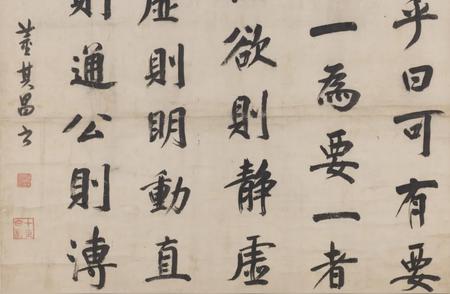 乎曰可有要
一為要一者
欲則静虛
虛則明動直
則通公則溥
董其昌书